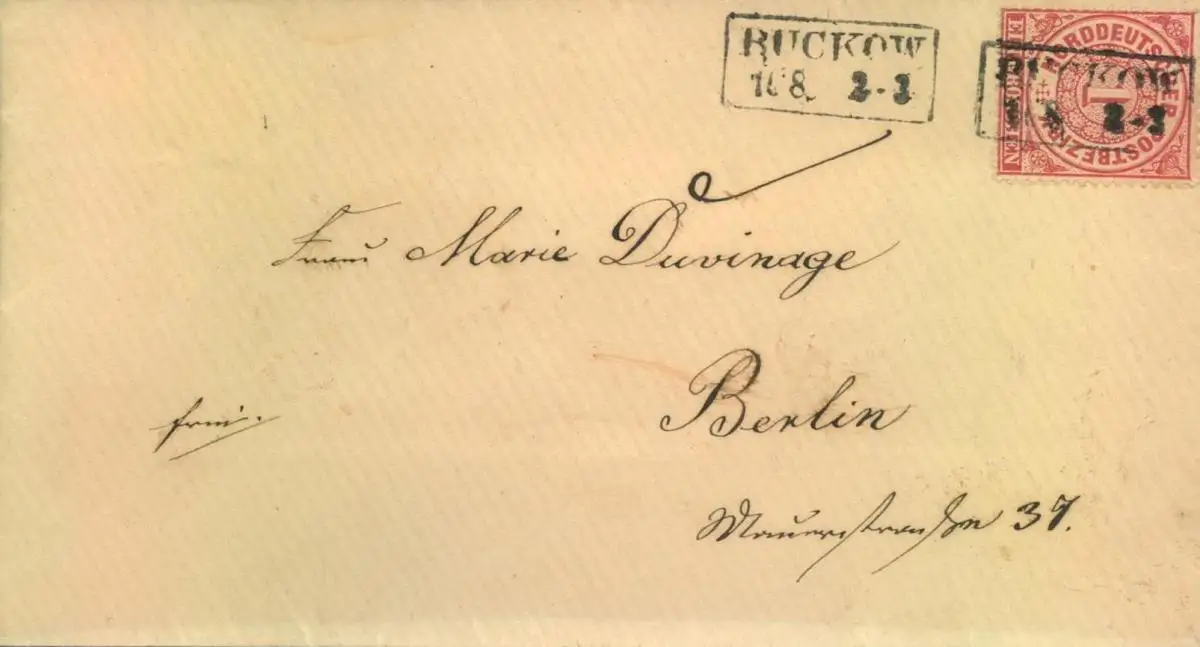 BUCKOW
16 8 2-3
NORDDEUTSCHER POSTBEZIRK
EIN GROSCHEN
1
BUCKOW
2-3
Frau Marie Duvinage
frei.
Berlin
Mauerstraße 37.